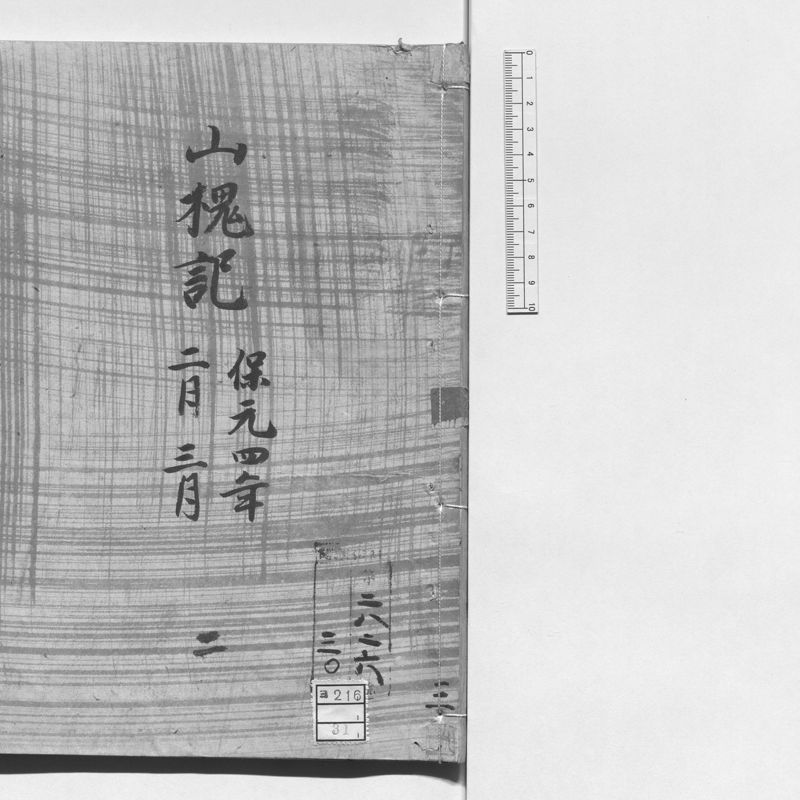 山槐記
保元四年
二月 三月
二
三〇
ヨ216
31
0 1 2 3 4 5 6 7 8 9 10